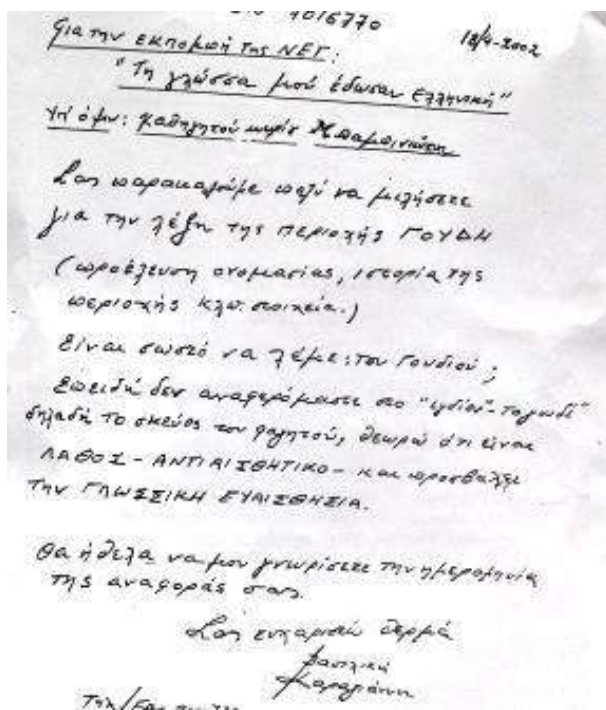 4016770
18/4-2002
Για την εκπομπή της ΝΕΤ:
"Τη γλώσσα μού έδωσαν Ελληνική"
Υπ' όψιν: Καθηγητού κυρίου Μπαμπινιώτη
Σας παρακαλούμε πολύ να μιλήσετε
για την λέξη της περιοχής ΓΟΥΔΗ
(προέλευση ονομασίας, ιστορία της
περιοχής κλπ. στοιχεία.)
Είναι σωστό να λέμε: του Γουδιού;
Επειδή δεν αναφερόμαστε στο "ιγδίον"-το γουδί"
δηλαδή το σκεύος του φαγητού, θεωρώ ότι είναι
ΛΑΘΟΣ - ΑΝΤΙΑΙΣΘΗΤΙΚΟ - και προσβάλλει
την ΓΛΩΣΣΙΚΗ ΕΥΑΙΣΘΗΣΙΑ.
Θα ήθελα να μου γνωρίσετε την ημερομηνία
της αναφοράς σας.
Σας ευχαριστώ θερμά
Βασιλική